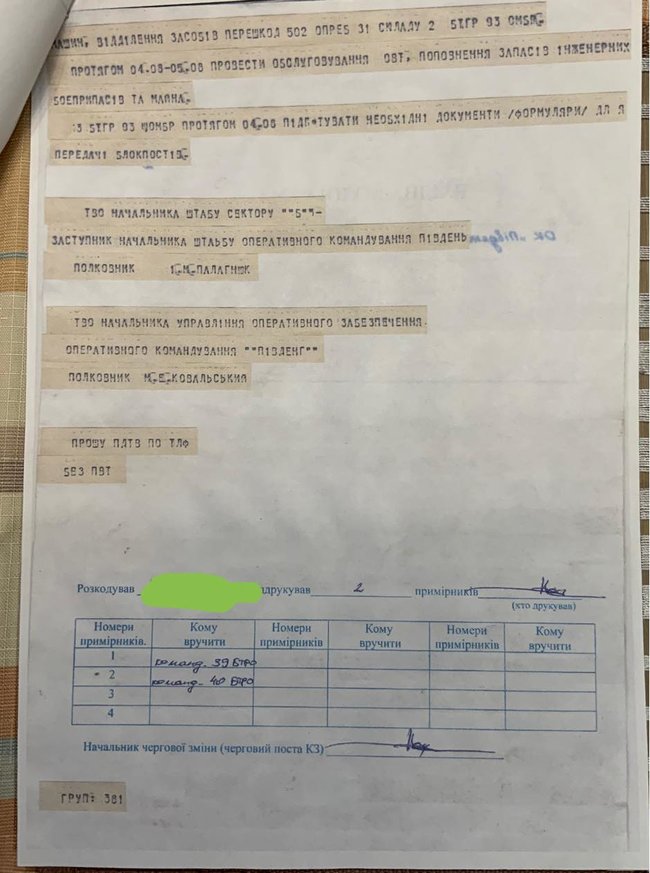 МАШИН, ВІДДІЛЕННЯ ЗАСОБІВ ПЕРЕШКОД 502 ОПРЕБ ЗІ СКЛАДУ 2 БТГР 93 ОМБР.
ПРОТЯГОМ 04.08-05.08 ПРОВЕСТИ ОБСЛУГОВУВАННЯ ОВТ, ПОПОВНЕННЯ ЗАПАСІВ ІНЖЕНЕРНИХ
БОЕПРИПАСІВ ТА МАЙНА.
БТГР 93 ОМБР ПРОТЯГОМ 04.08 НЕОБХІДНІ ДОКУМЕНТИ /ФОРМУЛЯРИ/ ДЛЯ
ПЕРЕДАЧІ БЛОКПОСТІВ.
ТВО НАЧАЛЬНИКА ШТАБУ СЕКТОРУ ""Б""-
ЗАСТУПНИК НАЧАЛЬНИКА ШТАЬБУ ОПЕРАТИВНОГО КОМАНДУВАННЯ ПІВДЕНЬ
ПОЛКОВНИК І.М.ПАЛАГНЮК
ТВО НАЧАЛЬНИКА УПРАВЛІННЯ ОПЕРАТИВНОГО ЗАБЕЗПЕЧЕННЯ
ОПЕРАТИВНОГО КОМАНДУВАННЯ ""ПІВДЕНГ""
ПОЛКОВНИК М.Е.КОВАЛЬСЬКИЙ
ПРОШУ ПДТВ ПО ТЛФ
БЕЗ ПВТ
Розкодував друкував 2 примірників
(хто друкував)
Номери примірників. Кому вручити Номери примірників Кому вручити Номери примірників Кому вручити
1 команд. 39 БТРО
2 команд. 40 БТРО
3
4
Начальник чергової зміни (черговий поста КЗ)
ГРУП: 381